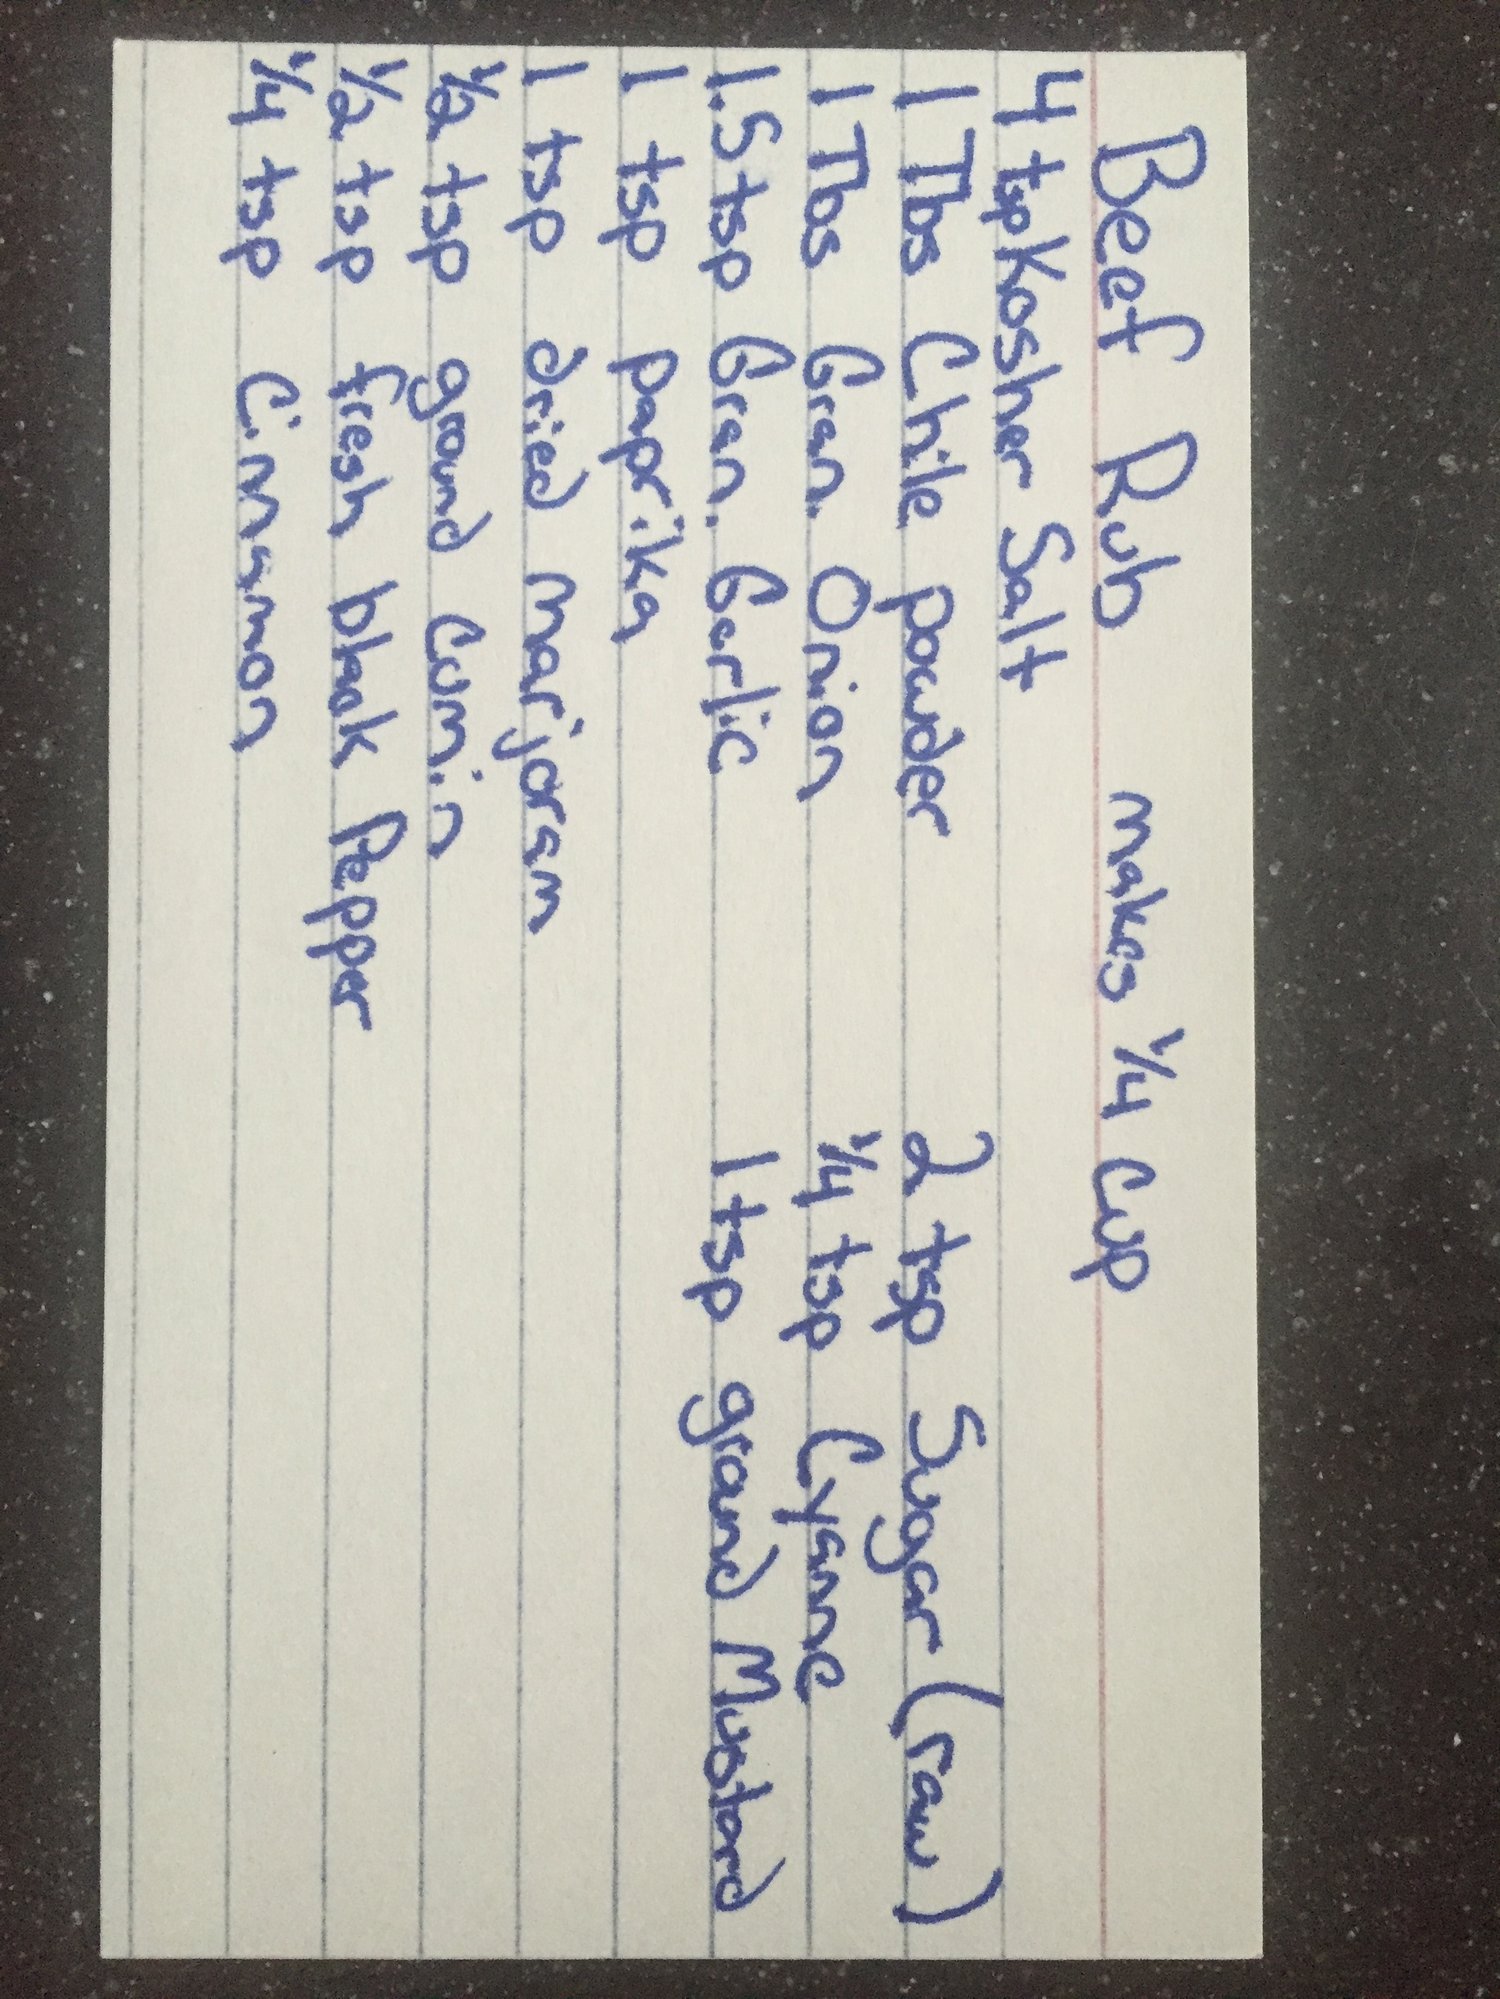 Beef Rub makes 1/4 cup
4 tsp Kosher Salt
1 Tbs Chile powder
1 Tbs Gran. Onion
1.5 tsp Gran. Garlic
1 tsp paprika
1 tsp dried marjoram
1/2 tsp ground cumin
1/2 tsp fresh black Pepper
1/4 tsp Cinnamon
2 tsp Sugar (raw)
1/4 tsp Cyanne
1 tsp ground Mustard